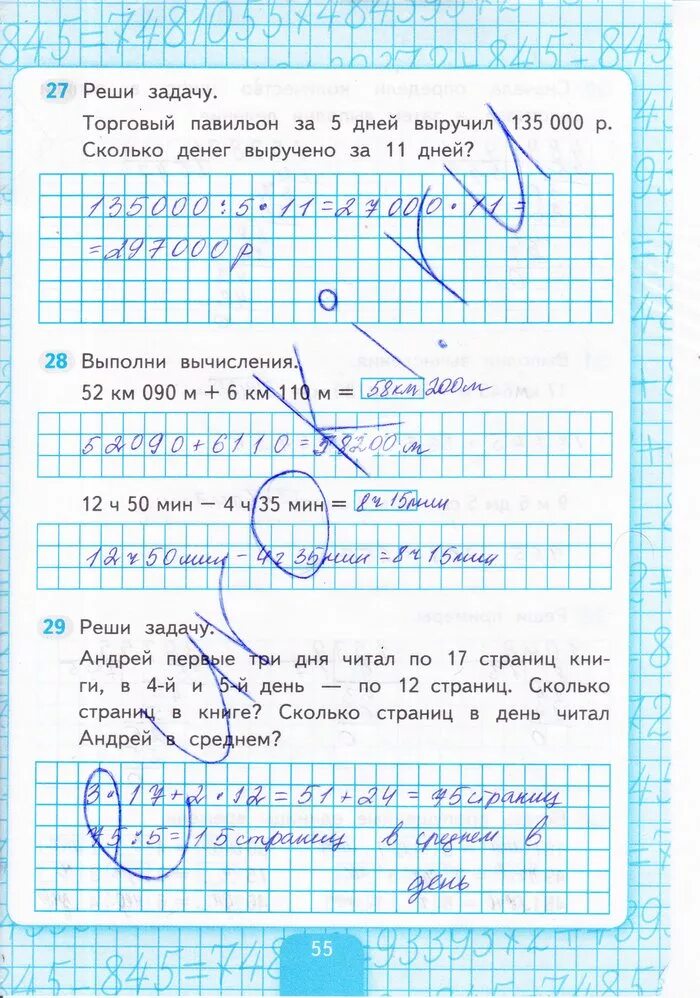 27 Реши задачу.
Торговый павильон за 5 дней выручил 135 000 р.
Сколько денег выручено за 11 дней?
135000 : 5 • 11 = 27000 • 11 =
= 297000 р
28 Выполни вычисления.
52 км 090 м + 6 км 110 м = 58км 200м
52090 + 6110 = 58200 м
12 ч 50 мин − 4 ч 35 мин = 8ч 15мин
12ч 50мин − 4ч 35мин = 8ч 15мин
29 Реши задачу.
Андрей первые три дня читал по 17 страниц кни-
ги, в 4-й и 5-й день — по 12 страниц. Сколько
страниц в книге? Сколько страниц в день читал
Андрей в среднем?
3 • 17 + 2 • 12 = 51 + 24 = 75 страниц
75 : 5 = 15 страниц в среднем в
день
55